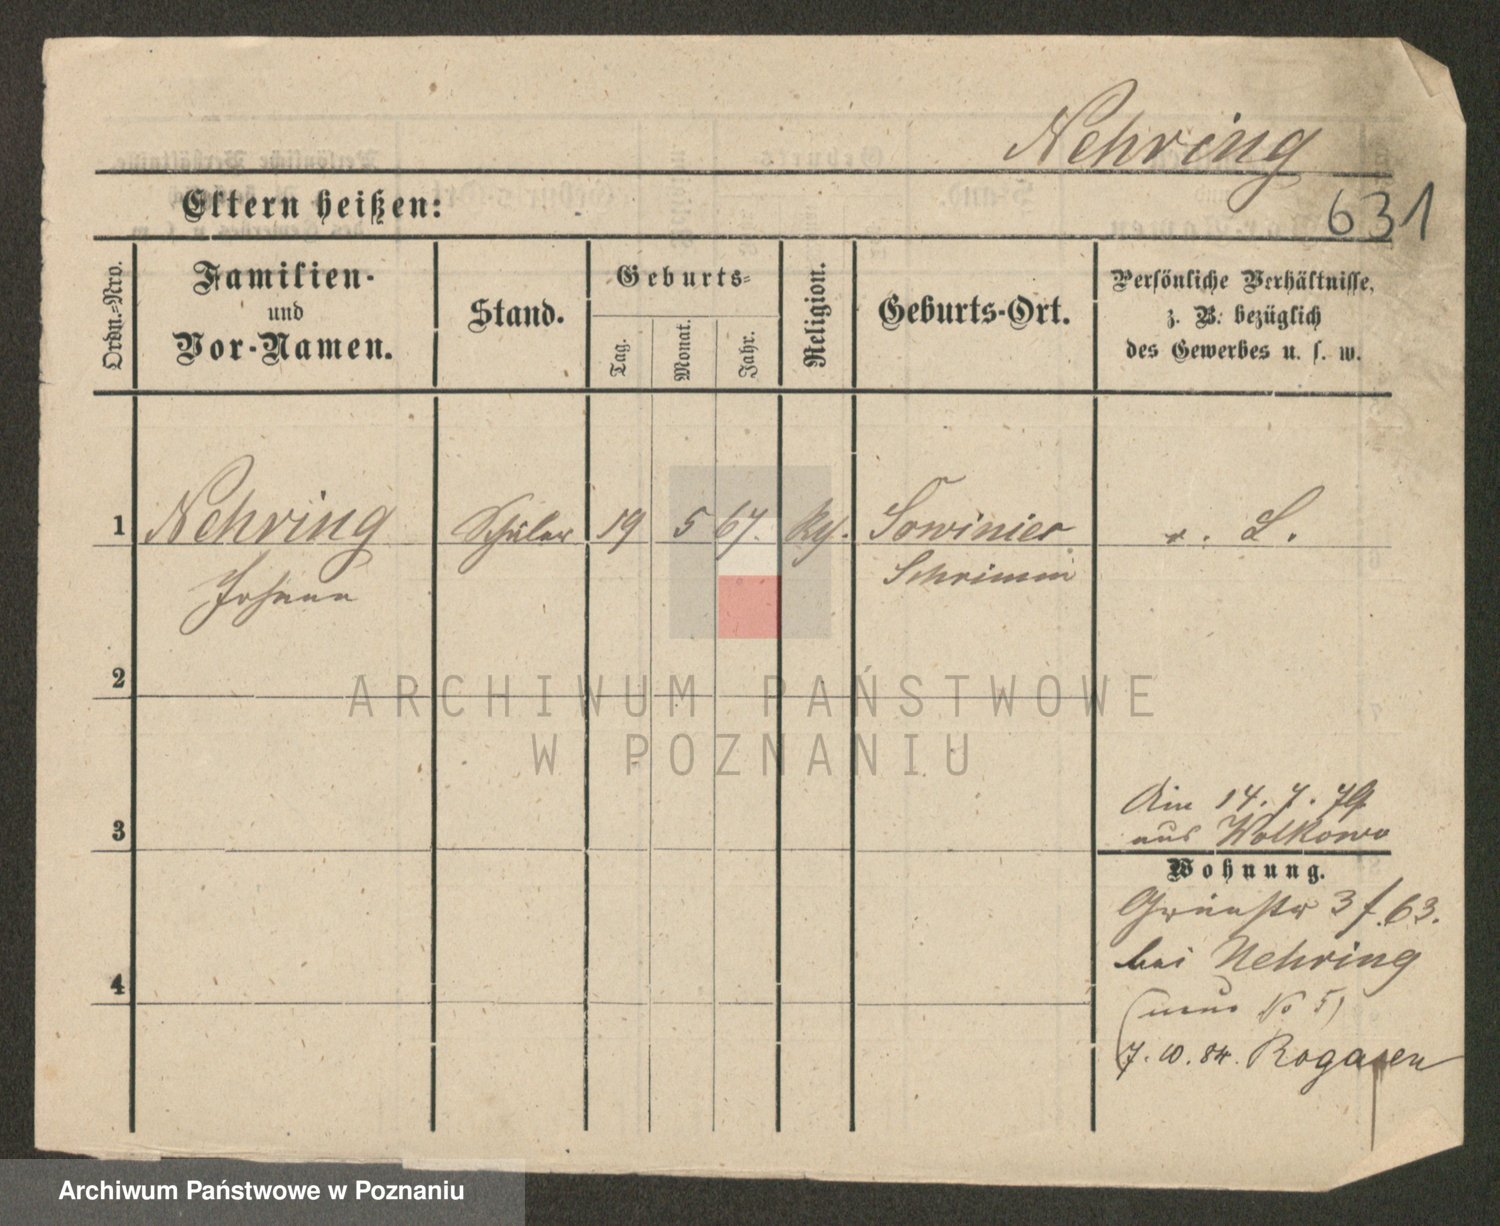 Nehring
631
Eltern heißen:
Ordn.-Nro.
Familien-
und
Vor-Namen.
Stand.
Geburts-
Tag.
Monat.
Jahr.
Religion.
Geburts-Ort.
Persönliche Verhältnisse,
z. B. bezüglich
des Gewerbes u. s. w.
1 Nehring Schüler 19 5 67. Sowiniec L.
Johann Schrimm
2
ARCHIWUM PAŃSTWOWE
W POZNANIU
14. 7. 79
3 aus Wolkowo
Wohnung.
Grünstr 3 f. 63.
bei Nehring
4
(neue No 5)
7. 10. 84. Rogasen
Archiwum Państwowe w Poznaniu